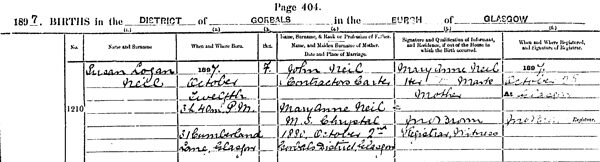 Page 404.
1897. BIRTHS in the DISTRICT of GORBALS in the BURGH of GLASGOW
No. Name and Surname When and Where Born. Sex. Name, Surname, & Rank or Profession of Father. Name, and Maiden Surname of Mother. Date and Place of Marriage. Signature and Qualification of Informant, and Residence, if out of the House in which the Birth occurred. When and Where Registered, and Signature of Registrar.
Susan Logan 1897, F. John Neil Mary Anne Neil 1897,
Neil October Contractors Carter Her X Mark October
Twelfth Mother At Glasgow
1210 3 h. 40 m. P.M. Mary Anne Neil
M.S. Chrystal Registrar
31 Cumberland 1890, October 2nd Registrar, Witness
Lane, Glasgow Gorbals District, Glasgow